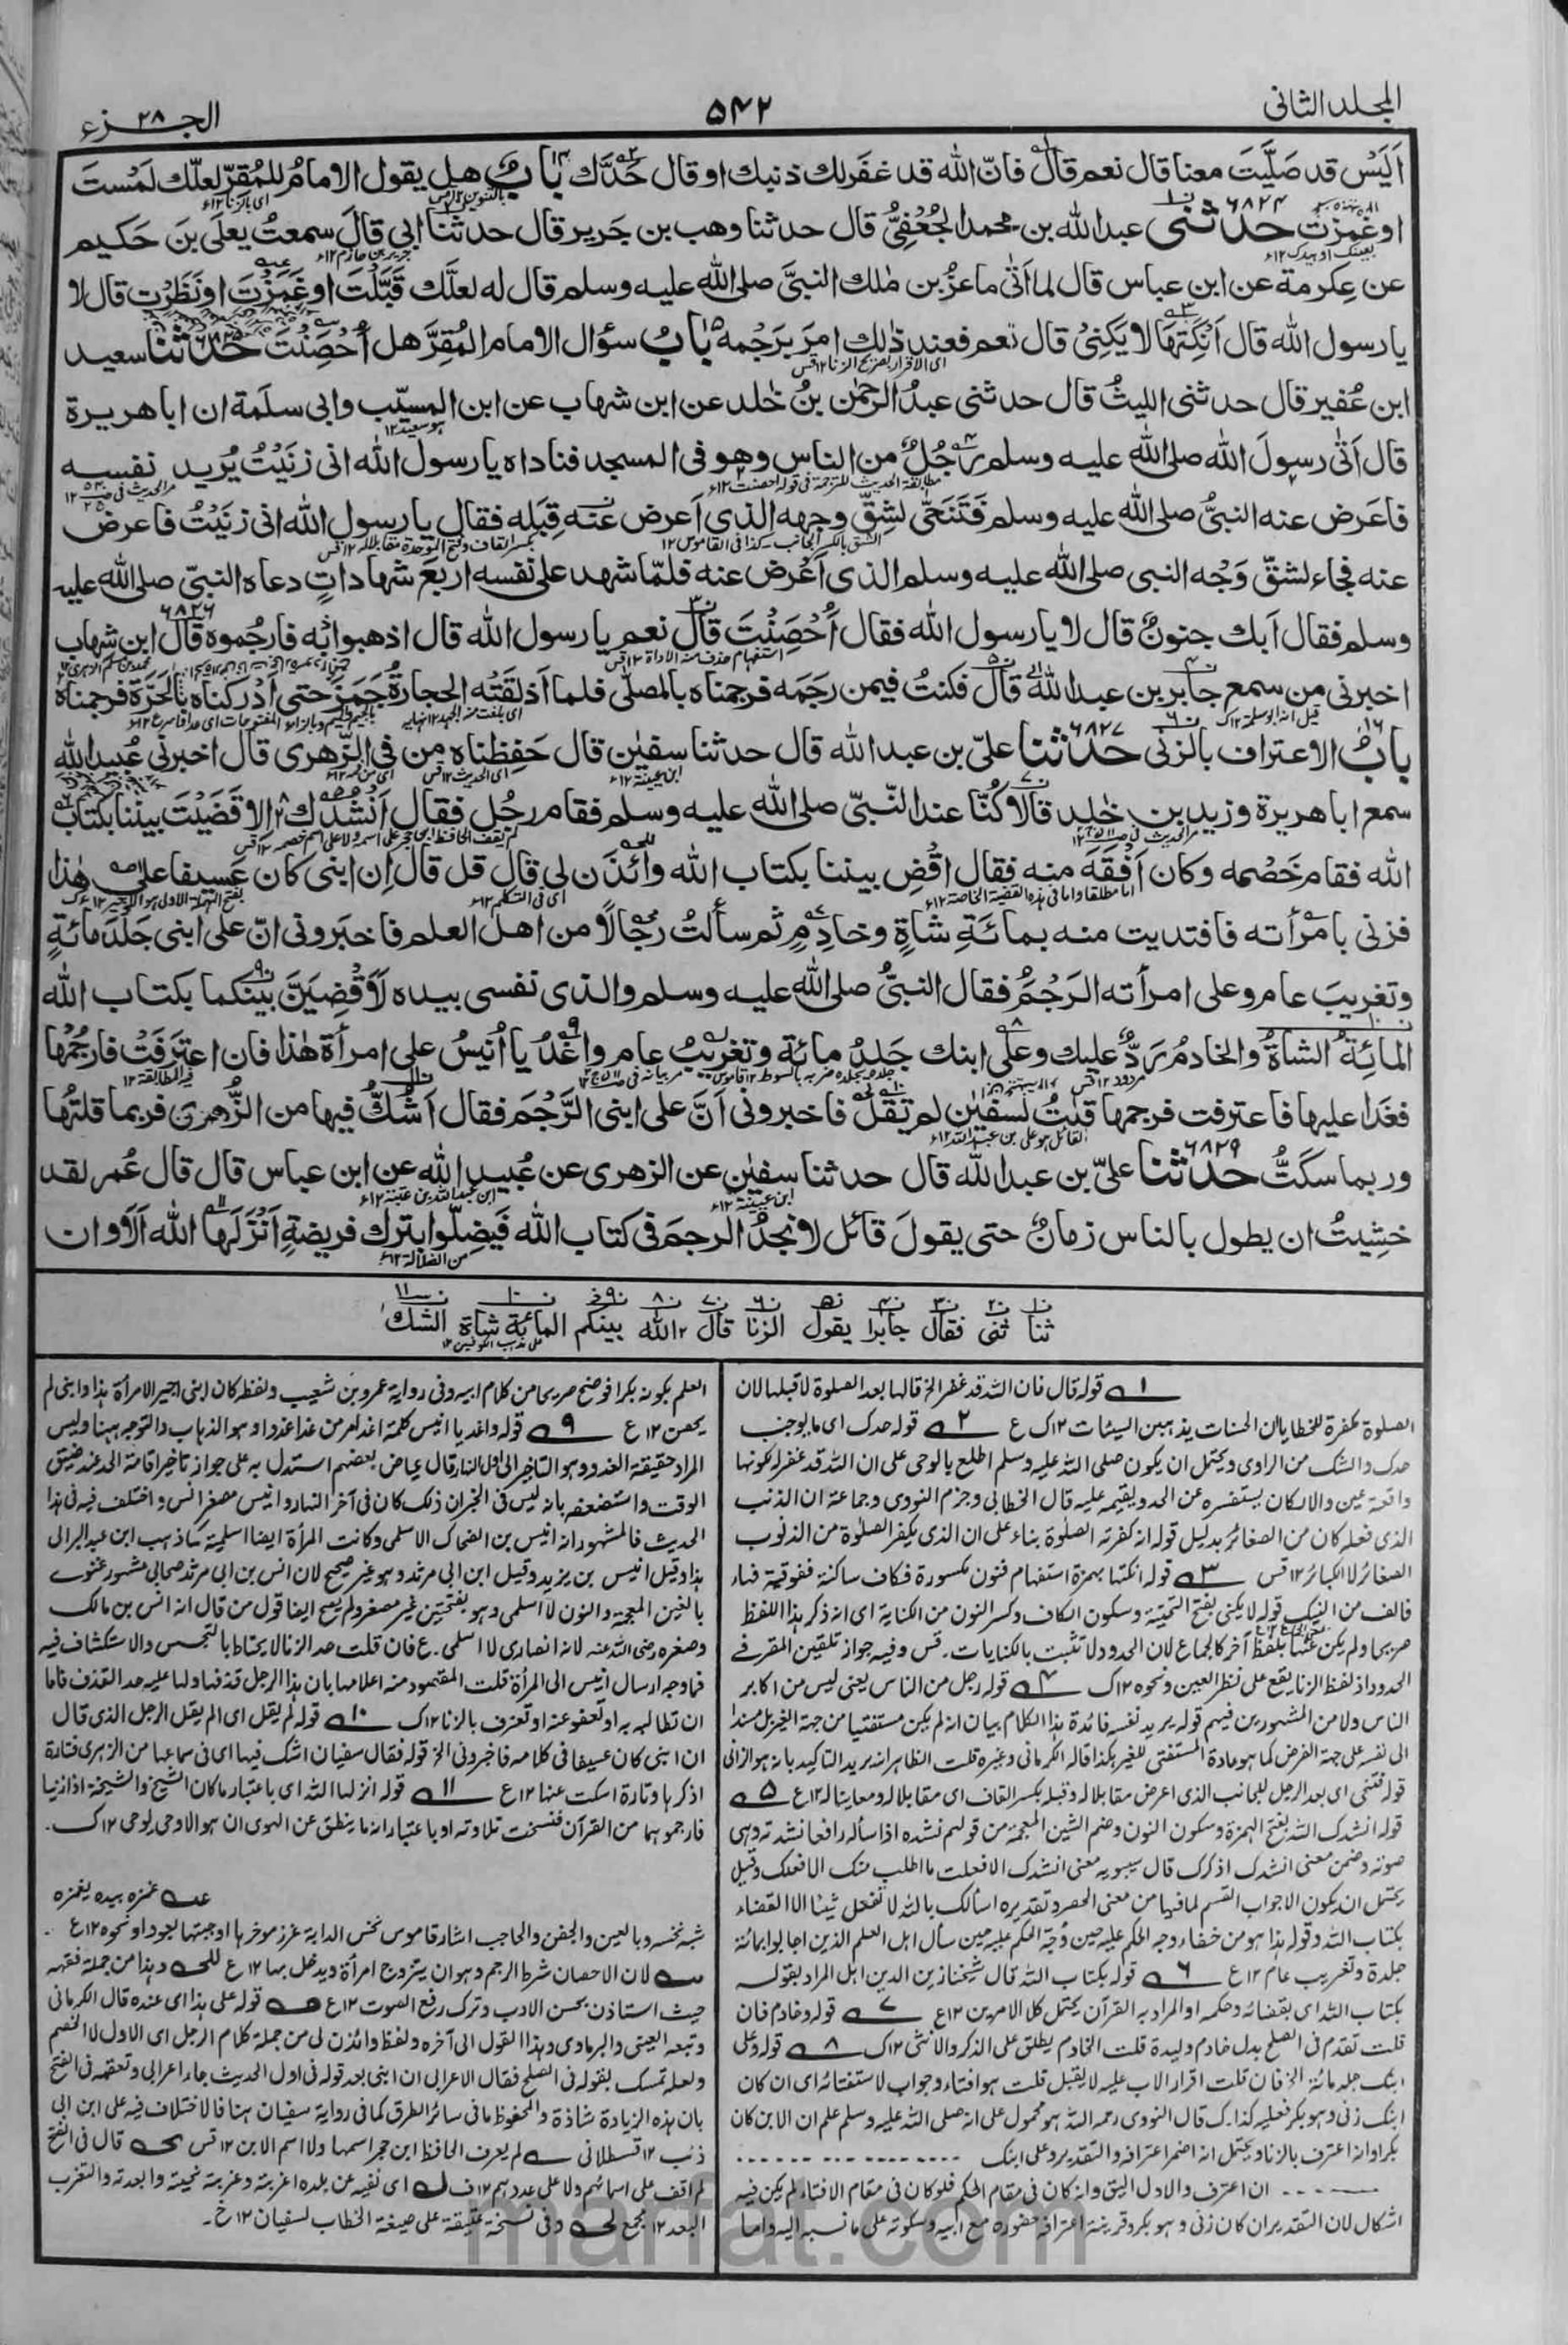 المجلد الثانی
۵۴۲
الجزء ۲۸
اَلَیْس قد صَلَّیتَ معنا قال نعم قال فانّ الله قد غفر لك ذنبك او قال حَدَّك بابٌ هل یقول الامامُ للمُقِرّ لعلّك لمستَ
او غمزتَ حدثنی عبد الله بن محمد الجُعْفِیُّ قال حدثنا وهب بن جَریر قال حدثنا ابی قالَ سمعتُ یعلَی بنَ حَکیم
عن عِکرمة عن ابن عباس قال لما اَتٰی ماعزُ بن مٰلك النبیَّ صلی الله علیه وسلم قال له لعلَّك قَبَّلْتَ او غَمَزْتَ او نَظَرْتَ قال لا
یا رسول الله قال اَنِکْتَهَا لا یَکْنِیْ قال نعم فعند ذٰلك امَرَ برَجْمه بابُ سؤال الامام المُقِرَّ هل اُحْصِنْتَ حدثنا سعید
ابن عُفیر قال حدثنی اللیثُ قال حدثنی عبدُ الرحمٰن بنُ خٰلد عن ابن شهاب عن ابن المسیّب وابی سلَمة ان ابا هریرة
قال اَتٰی رسولَ الله صلی الله علیه وسلم رَجُلٌ من الناس وهو فی المسجد فناداه یا رسول الله انی زنَیْتُ یُرید نفسه
فاعَرض عنه النبیُّ صلی الله علیه وسلم فَتَنَحّٰی لشِقِّ وجهه الذی اَعرض عنه قِبَله فقال یا رسول الله انی زنَیْتُ فاعرض
عنه فجاء لشقّ وَجْه النبی صلی الله علیه وسلم الذی اَعْرض عنه فلمّا شهد علی نفسه اربعَ شهاداتٍ دعاه النبیّ صلی الله علیه
وسلم فقال اَبك جنونٌ قال لا یا رسول الله فقال اَحْصَنْتَ قال نعم یا رسول الله قال اذهبوا به فارجُموه ۶۸۲۶ قال ابن شهاب
اخبرنی من سمع جابر بن عبد الله قال فکنتُ فیمن رجَمه فرجمناه بالمصلّٰی فلما اَذلقَتْه الحجارةُ جَمَزَ حتی اَدْرکناه بالحَرَّة فرجمناه
بابُ الاعتراف بالزنٰی ۶۸۲۷ حدثنا علیّ بن عبد الله قال حدثنا سفیٰن قال حَفِظناه من فی الزّهری قال اخبرنی عُبید الله
سمع ابا هریرة وزید بن خٰلد قالا کُنّا عند النّبیّ صلی الله علیه وسلم فقام رجُل فقال اَنْشُدُك الا قَضَیْتَ بیننا بکتاب
الله فقام خَصْمه وکان اَفْقَهَ منه فقال اقْضِ بیننا بکتاب الله وائْذَن لی قال قل قال اِن ابنی کان عَسیفا علی هٰذا
فزنی بامرأته فافتدیت منه بمائَةِ شاةٍ وخادِمٍ ثم سألتُ رجالًا من اهل العلم فاخبَرونی انّ علی ابنی جَلْدَ مائةٍ
وتغریبَ عام وعلی امرأته الرَجْمُ فقال النبیُّ صلی الله علیه وسلم والذی نفسی بیده لَاَقْضِیَنَّ بینکما بکتاب الله
المائةُ الشاةُ والخادمُ رَدٌّ علیك وعلی ابنك جَلدُ مائة وتغریبُ عام واغْدُ یا اُنَیْسُ علی امرأة هٰذا فان اعتَرفَتْ فارجُمْها
فغَدا علیها فاعترفت فرجمها قلتُ لسُفیٰن لم تقل فاخبرونی اَنَّ علی ابنی الرَّجْمَ فقال اَشُكُّ فیها من الزُّهری فربما قلتُها
وربما سکَتُّ ۶۸۲۹ حدثنا علیّ بن عبد الله قال حدثنا سفیٰن عن الزهری عن عُبید الله عن ابن عباس قال قال عُمر لقد
خشِیتُ ان یطول بالناس زمانٌ حتی یقولَ قائل لا نجدُ الرجمَ فی کتاب الله فَیَضِلّوا بترك فریضةٍ اَنْزَلَها الله اَلَا وان
ثنا ثنی فقال جابرا یقول الزنا قال الله بینکم المائة شاة الشك
۱ قوله قال فان الله قد غفر الخ قالها بعد الصلوة لا قبلها لان
الصلوة مکفرة للخطایا ان الحسنات یذهبن السیئات ۱۲ ك ع ۲ قوله حدك ای ما یوجب
حدك والشك من الراوی ویحتمل ان یکون صلی الله علیه وسلم اطلع بالوحی علی ان الله قد غفر له لکونها
واقعة عین والا لکان یستفسره عن الحد ویقیمه علیه قال الخطابی وجزم النووی وجماعة ان الذنب
الذی فعله کان من الصغائر بدلیل قوله انه کفرته الصلوة بناء علی ان الذی یکفر الصلوة من الذنوب
الصغائر لا الکبائر ۱۲ قس ۳ قوله انکتها بهمزة استفهام فنون مکسورة فکاف ساکنة ففوقیة فهاء
فالف من النیك قوله لا یکنی بفتح التحتیة وسکون الکاف وکسر النون من الکنایة ای انه ذکر هذا اللفظ
صریحا ولم یکن عنها بلفظ آخر کالجماع لان الحدود لا تثبت بالکنایات۔ قس وفیه جواز تلقین المقر فی
الحدود اذ لفظ الزنا یقع علی نظر العین ونحوه ۱۲ ك ۴ قوله رجل من الناس یعنی لیس من اکابر
الناس ولا من المشهورین فیهم قوله یرید نفسه فائدة هذا الکلام بیان انه لم یکن مستفتیا من جهة الغیر بل مسندا
الی نفسه علی جهة الفرض کما هو عادة المستفتی للغیر هکذا قاله الکرمانی وغیره قلت الظاهر انه یرید التاکید بانه هو الزانی
قوله فتنحی ای بعد الرجل للجانب الذی اعرض مقابلا له وقبله بکسر القاف ای مقابلا له ومعاینا له ۱۲ ع ۵
قوله انشدك الله بفتح الهمزة وسکون النون وضم الشین المعجمة من قولهم نشده اذا سأله رافعا نشدته وهی
صوته وضمن معنی انشدك اذکرك قال سیبویه معنی انشدك الا فعلت ما اطلب منك الا فعلك وقیل
یحتمل ان یکون الا جواب القسم لما فیها من معنی الحصر وتقدیره اسألك بالله لا تفعل شیئا الا القضاء
بکتاب الله
جلدة وتغریب عام ۱۲ ع ۶ قوله بکتاب الله قال شیخنا زین الدین المراد بقوله
بکتاب الله ای بقضائه وحکمه او المراد به القرآن یحتمل کلا الامرین ۱۲ ع ۷ قوله وخادم فان
قلت تقدم فی الصلح بدل خادم ولیدة قلت الخادم یطلق علی الذکر والانثی ۱۲ ك ۸ قوله وعلی
ابنك جلد مائة الخ فان قلت اقرار الاب علیه لا یقبل قلت هو افتاء وجواب لاستفتائه ای ان کان
ابنك زنی وهو بکر فعلیه کذا۔ ك قال النووی رحمه الله هو محمول علی انه صلی الله علیه وسلم علم ان الابن کان
بکرا وانه اعترف بالزنا ویحتمل انه اضمر اعترافه والتقدیر وعلی ابنك
ان اعترف والاول الیق وانه کان فی مقام الحکم فلو کان فی مقام الافتاء لم یکن فیه
اشکال لان التقدیر ان کان زنی وهو بکر وقرینة اعترافه حضوره مع ابیه وسکوته علی ما نسبه الیه واما
العلم بکونه بکرا فوضح صریحا من کلام ابیه وفی روایة عمرو بن شعیب ولفظه کان ابنی اجیر الامرأة هذا وابنی لم
یحصن ۱۲ ع ۹ قوله واغد یا انیس کلمة اغد امر من غدا غدوا وهو الذهاب والتوجه ههنا ولیس
المراد حقیقة الغدو وهو التاخیر الی اول النهار قال عیاض بعضهم استدل به علی جواز تاخیر اقامة الحد عند ضیق
الوقت واستضعفه بانه لیس فی الخبر ان ذلك کان فی آخر النهار وانیس مصغر انس واختلف فیه فی هذا
الحدیث فالمشهور انه انیس بن الضحاك الاسلمی وکانت المرأة ایضا اسلمیة کما ذهب ابن عبد البر الی
هذا وقیل انیس بن یزید وقیل ابن ابی مرثد وهو غیر صحیح لان انس بن ابی مرثد صحابی مشهور غنوی
بالغین المعجمة والنون لا اسلمی وهو بفتحتین غیر مصغر ولم یصح ایضا قول من قال انه انس بن مالك
وصغره رضی الله عنه لانه انصاری لا اسلمی۔ ع فان قلت حد الزنا لا یحتاط بالتجسس والاستکشاف فیه
فما وجه ارسال انیس الی المرأة قلت المقصود منه اعلامها بان هذا الرجل قذفها ولها علیه حد القذف فاما
ان تطالبه به او تعفو عنه او تعترف بالزنا ۱۲ ك ۱۰ قوله لم یقل ای الم یقل الرجل الذی قال
ان ابنی کان عسیفا فی کلامه فاخبرونی الخ قوله فقال سفیان اشك فیها ای فی سماعها من الزهری فتارة
اذکرها وتارة اسکت عنها ۱۲ ع ۱۱ قوله انزلها الله ای باعتبار ما کان الشیخ والشیخة اذا زنیا
فارجموهما من القرآن فنسخت تلاوته او باعتبار انه ما ینطق عن الهوی ان هو الا وحی یوحی ۱۲ ك۔
عه غمزه بیده یغمزه
شبه نخسه وبالعین والجفن والحاجب اشار قاموس نخس الدابة غرز مؤخرها او جنبها بعود او نحوه ۱۲ ع
لان الاحصان شرط الرجم وهو ان یتزوج امرأة ویدخل بها ۱۲ ع وهذا من جملة فقهه
حیث استاذن بحسن الادب وترك رفع الصوت ۱۲ ع قوله علی هذا ای عنده قال الکرمانی
وتبعه العینی والبرماوی وهذا القول الی آخره ولفظ وائذن لی من جملة کلام الرجل ای الاول لا الخصم
ولعله تمسك بقوله فی الصلح فقال الاعرابی ان ابنی بعد قوله فی اول الحدیث جاء اعرابی وتعقبه فی الفتح
بان هذه الزیادة شاذة والمحفوظ ما فی سائر الطرق کما فی روایة سفیان هنا فالاختلاف فیه علی ابن ابی
ذئب ۱۲ قسطلانی لم یعرف الحافظ ابن حجر اسمها ولا اسم الابن ۱۲ قس قال فی الفتح
لم اقف علی اسمائهم ولا علی عددهم ۱۲ ف ای نفیه عن بلده اغربته وغربته نحیته وابعدته والتغرب
البعد ۱۲ مجمع وفی نسخة عتیقة علی صیغة الخطاب لسفیان ۱۲ خ۔
marfat.com